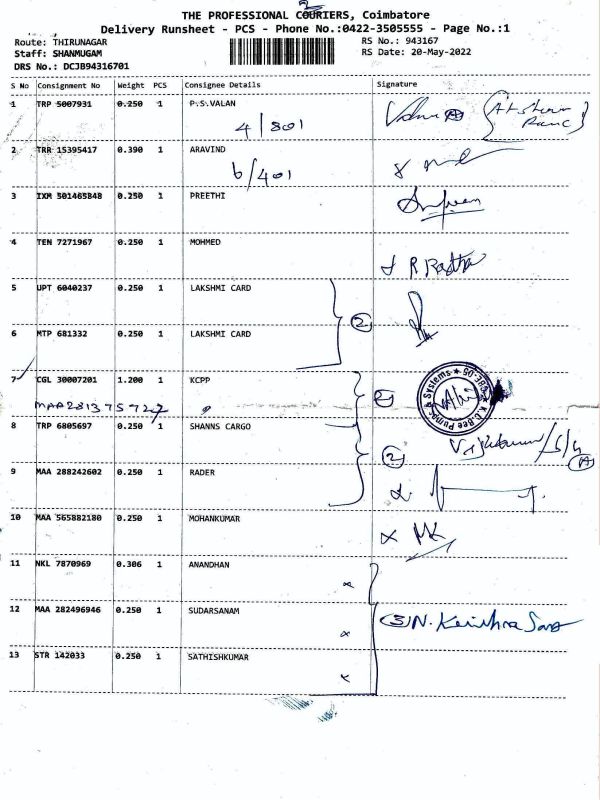 THE PROFESSIONAL COURIERS, Coimbatore
Delivery Runsheet - PCS - Phone No.:0422-3505555 - Page No.:1
Route: THIRUNAGAR RS No.: 943167
Staff: SHANMUGAM RS Date: 20-May-2022
DRS No.: DCJB94316701
S No Consignment No Weight PCS Consignee Details Signature
1 TRP 5007931 0.250 1 P.S.VALAN
4/801
2 TRR 15395417 0.390 1 ARAVIND
6/401
3 IXM 501465848 0.250 1 PREETHI
4 TEN 7271967 0.250 1 MOHMED
5 UPT 6040237 0.250 1 LAKSHMI CARD
2
6 MTP 681332 0.250 1 LAKSHMI CARD
7 CGL 30007201 1.200 1 KCPP
2
8 TRP 6805697 0.250 1 SHANNS CARGO
2
9 MAA 288242602 0.250 1 RADER
10 MAA 565882180 0.250 1 MOHANKUMAR
11 NKL 7870969 0.306 1 ANANDHAN
12 MAA 282496946 0.250 1 SUDARSANAM
13 STR 142033 0.250 1 SATHISHKUMAR